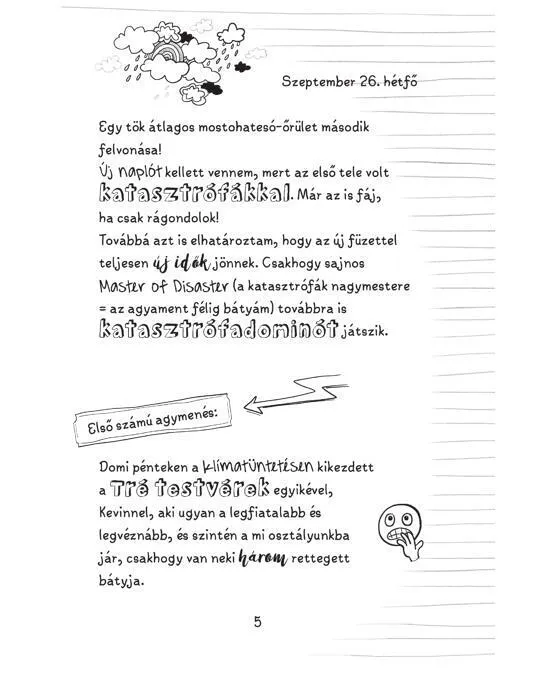 Szeptember 26. hétfő
Egy tök átlagos mostohatesó-őrület második
felvonása!
Új naplót kellett vennem, mert az első tele volt
katasztrófákkal. Már az is fáj,
ha csak rágondolok!
Továbbá azt is elhatároztam, hogy az új füzettel
teljesen új idők jönnek. Csakhogy sajnos
Master of Disaster (a katasztrófák nagymestere
= az agyament félig bátyám) továbbra is
katasztrófadominót játszik.
Első számú agymenés:
Domi pénteken a klímatüntetésen kikezdett
a Tré testvérek egyikével,
Kevinnel, aki ugyan a legfiatalabb és
legvéznább, és szintén a mi osztályunkba
jár, csakhogy van neki három rettegett
bátyja.
5